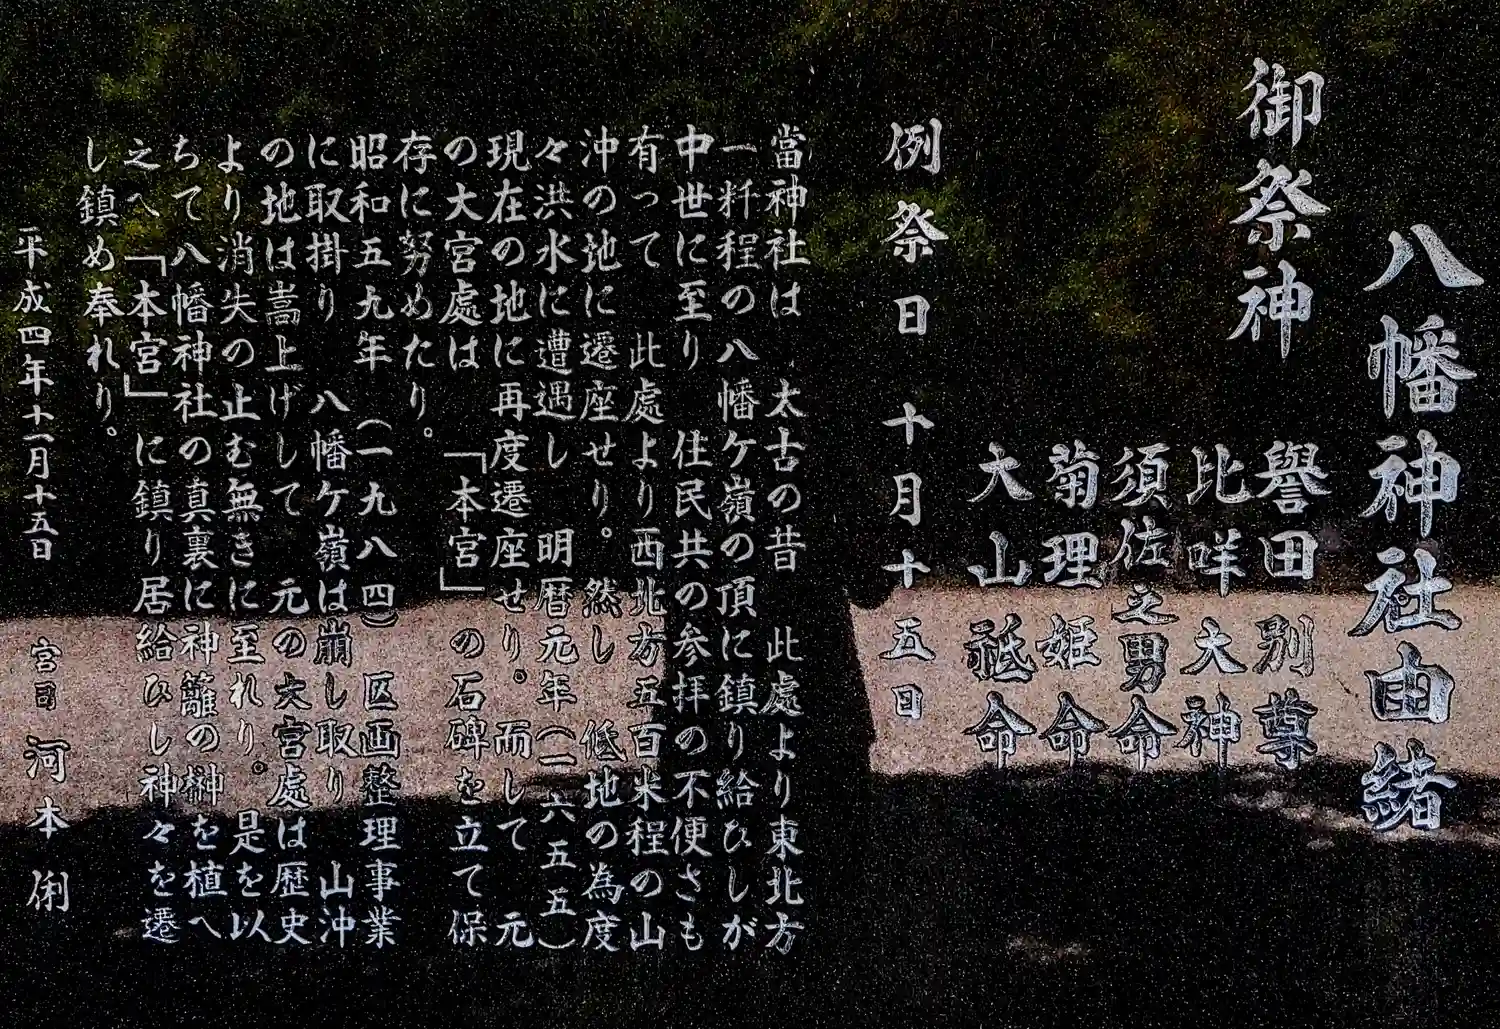 八幡神社由緒
御祭神
譽田別尊
比咩大神
須佐之男命
菊理姫命
大山祗命
例祭日 十月十五日
當神社は 太古の昔 此處より東北方
一粁程の八幡ケ嶺の頂に鎮り給ひしが
中世に至り 住民共の参拝の不便さも
有って 此處より西北方五百米程の山
沖の地に遷座せり。然し 低地の為度
々洪水に遭遇し 明暦元年(一六五五)
現在の地に再度遷座せり。而して 元
の大宮處は 「本宮」の石碑を立て保
存に努めたり。
昭和五九年(一九八四)区画整理事業
に取掛り 八幡ケ嶺は崩し取り 山沖
の地は嵩上げして 元の大宮處は歴史
より消失の止む無きに至れり。是を以
ちて八幡神社の真裏に神籬の榊を植へ
之へ「本宮」に鎮り居給ひし神々を遷
し鎮め奉れり。
平成四年十一月十五日 宮司 河本俐